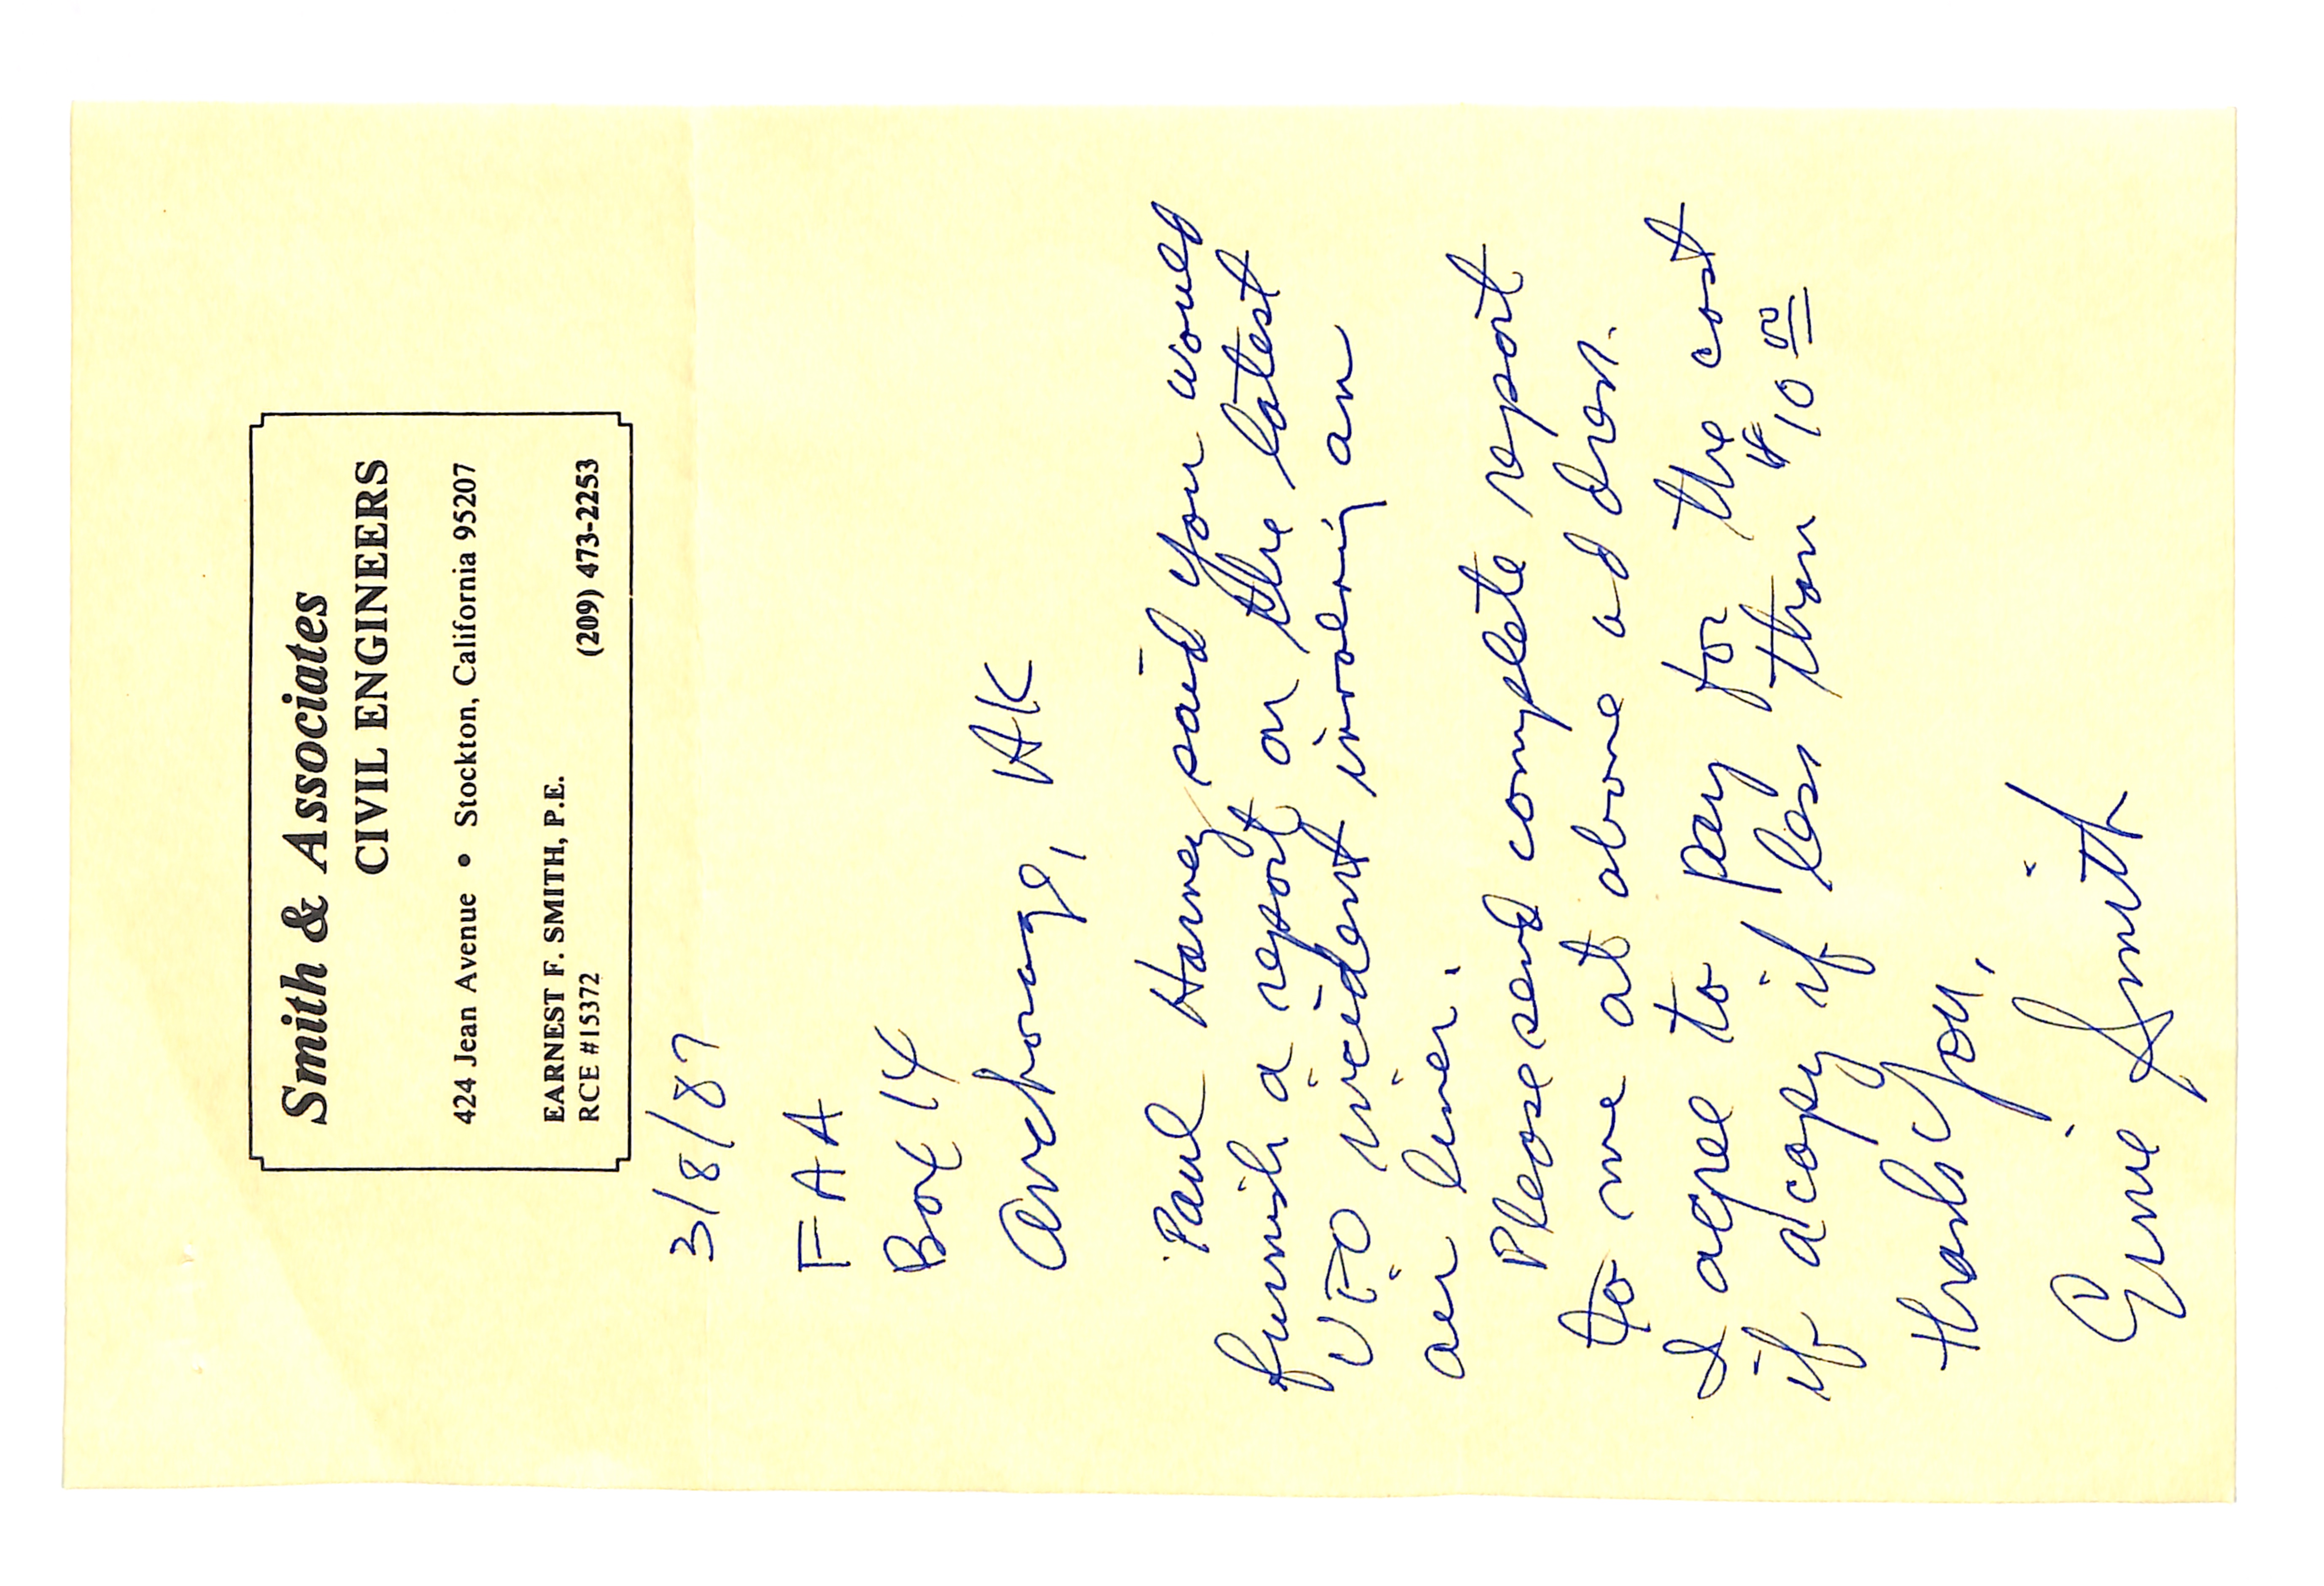 Smith & Associates
CIVIL ENGINEERS
424 Jean Avenue • Stockton, California 95207
EARNEST F. SMITH, P.E.
RCE #15372 (209) 473-2253
3/8/87
FAA
Box 14
Anchorage, AK
Paul Harvey said you would
furnish a report on the latest
UFO incident involving an
air liner.
Please send complete report
to me at above address.
I agree to pay for the cost
if a copy if less than $10 00
Thank you,
Ernie Smith